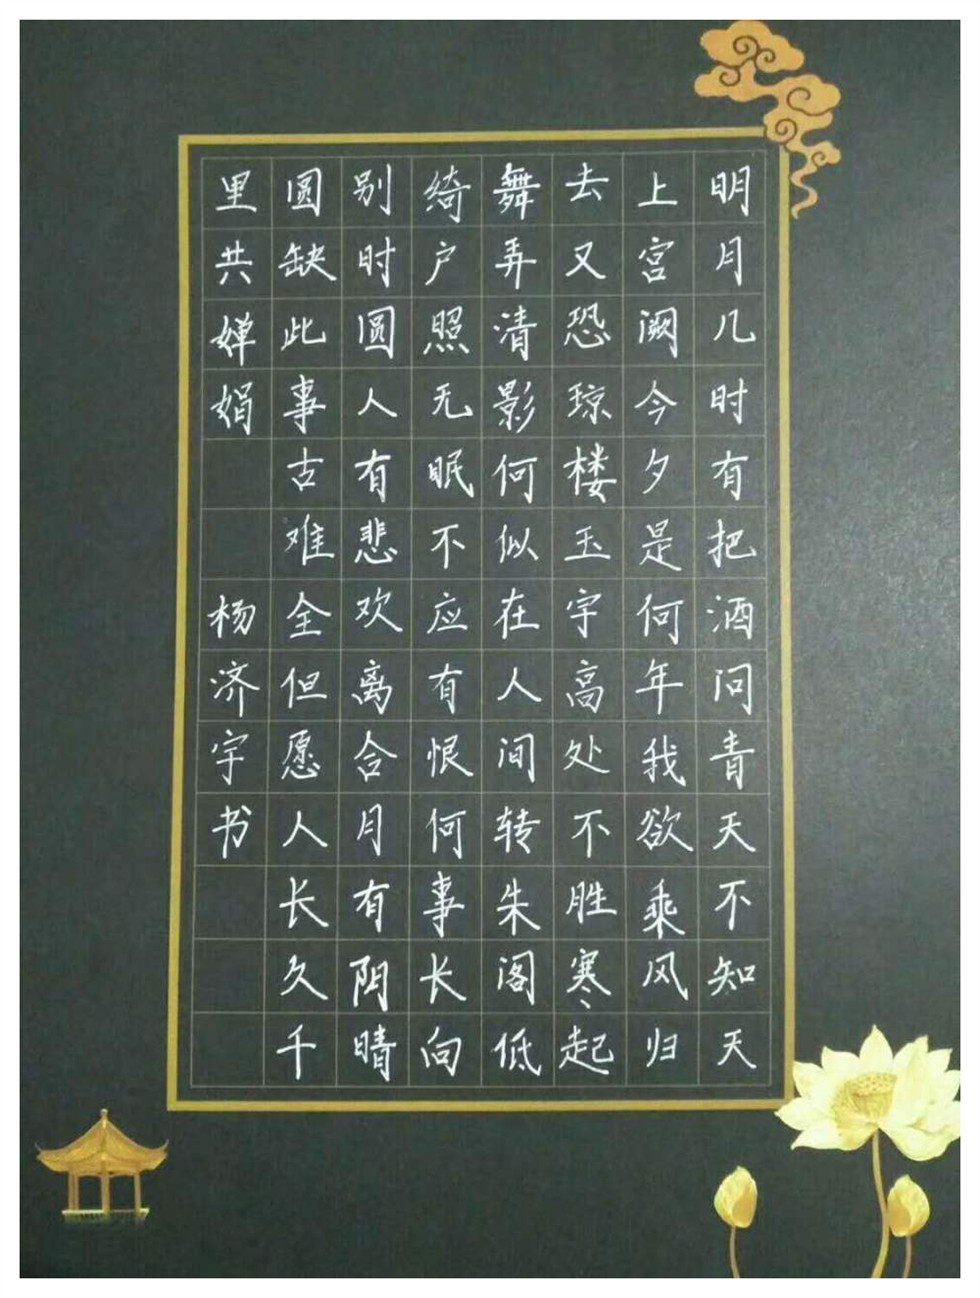 明月几时有把酒问青天不知天
上宫阙今夕是何年我欲乘风归
去又恐琼楼玉宇高处不胜寒起
舞弄清影何似在人间转朱阁低
绮户照无眠不应有恨何事长向
别时圆人有悲欢离合月有阴晴
圆缺此事古难全但愿人长久千
里共婵娟
杨济宇书